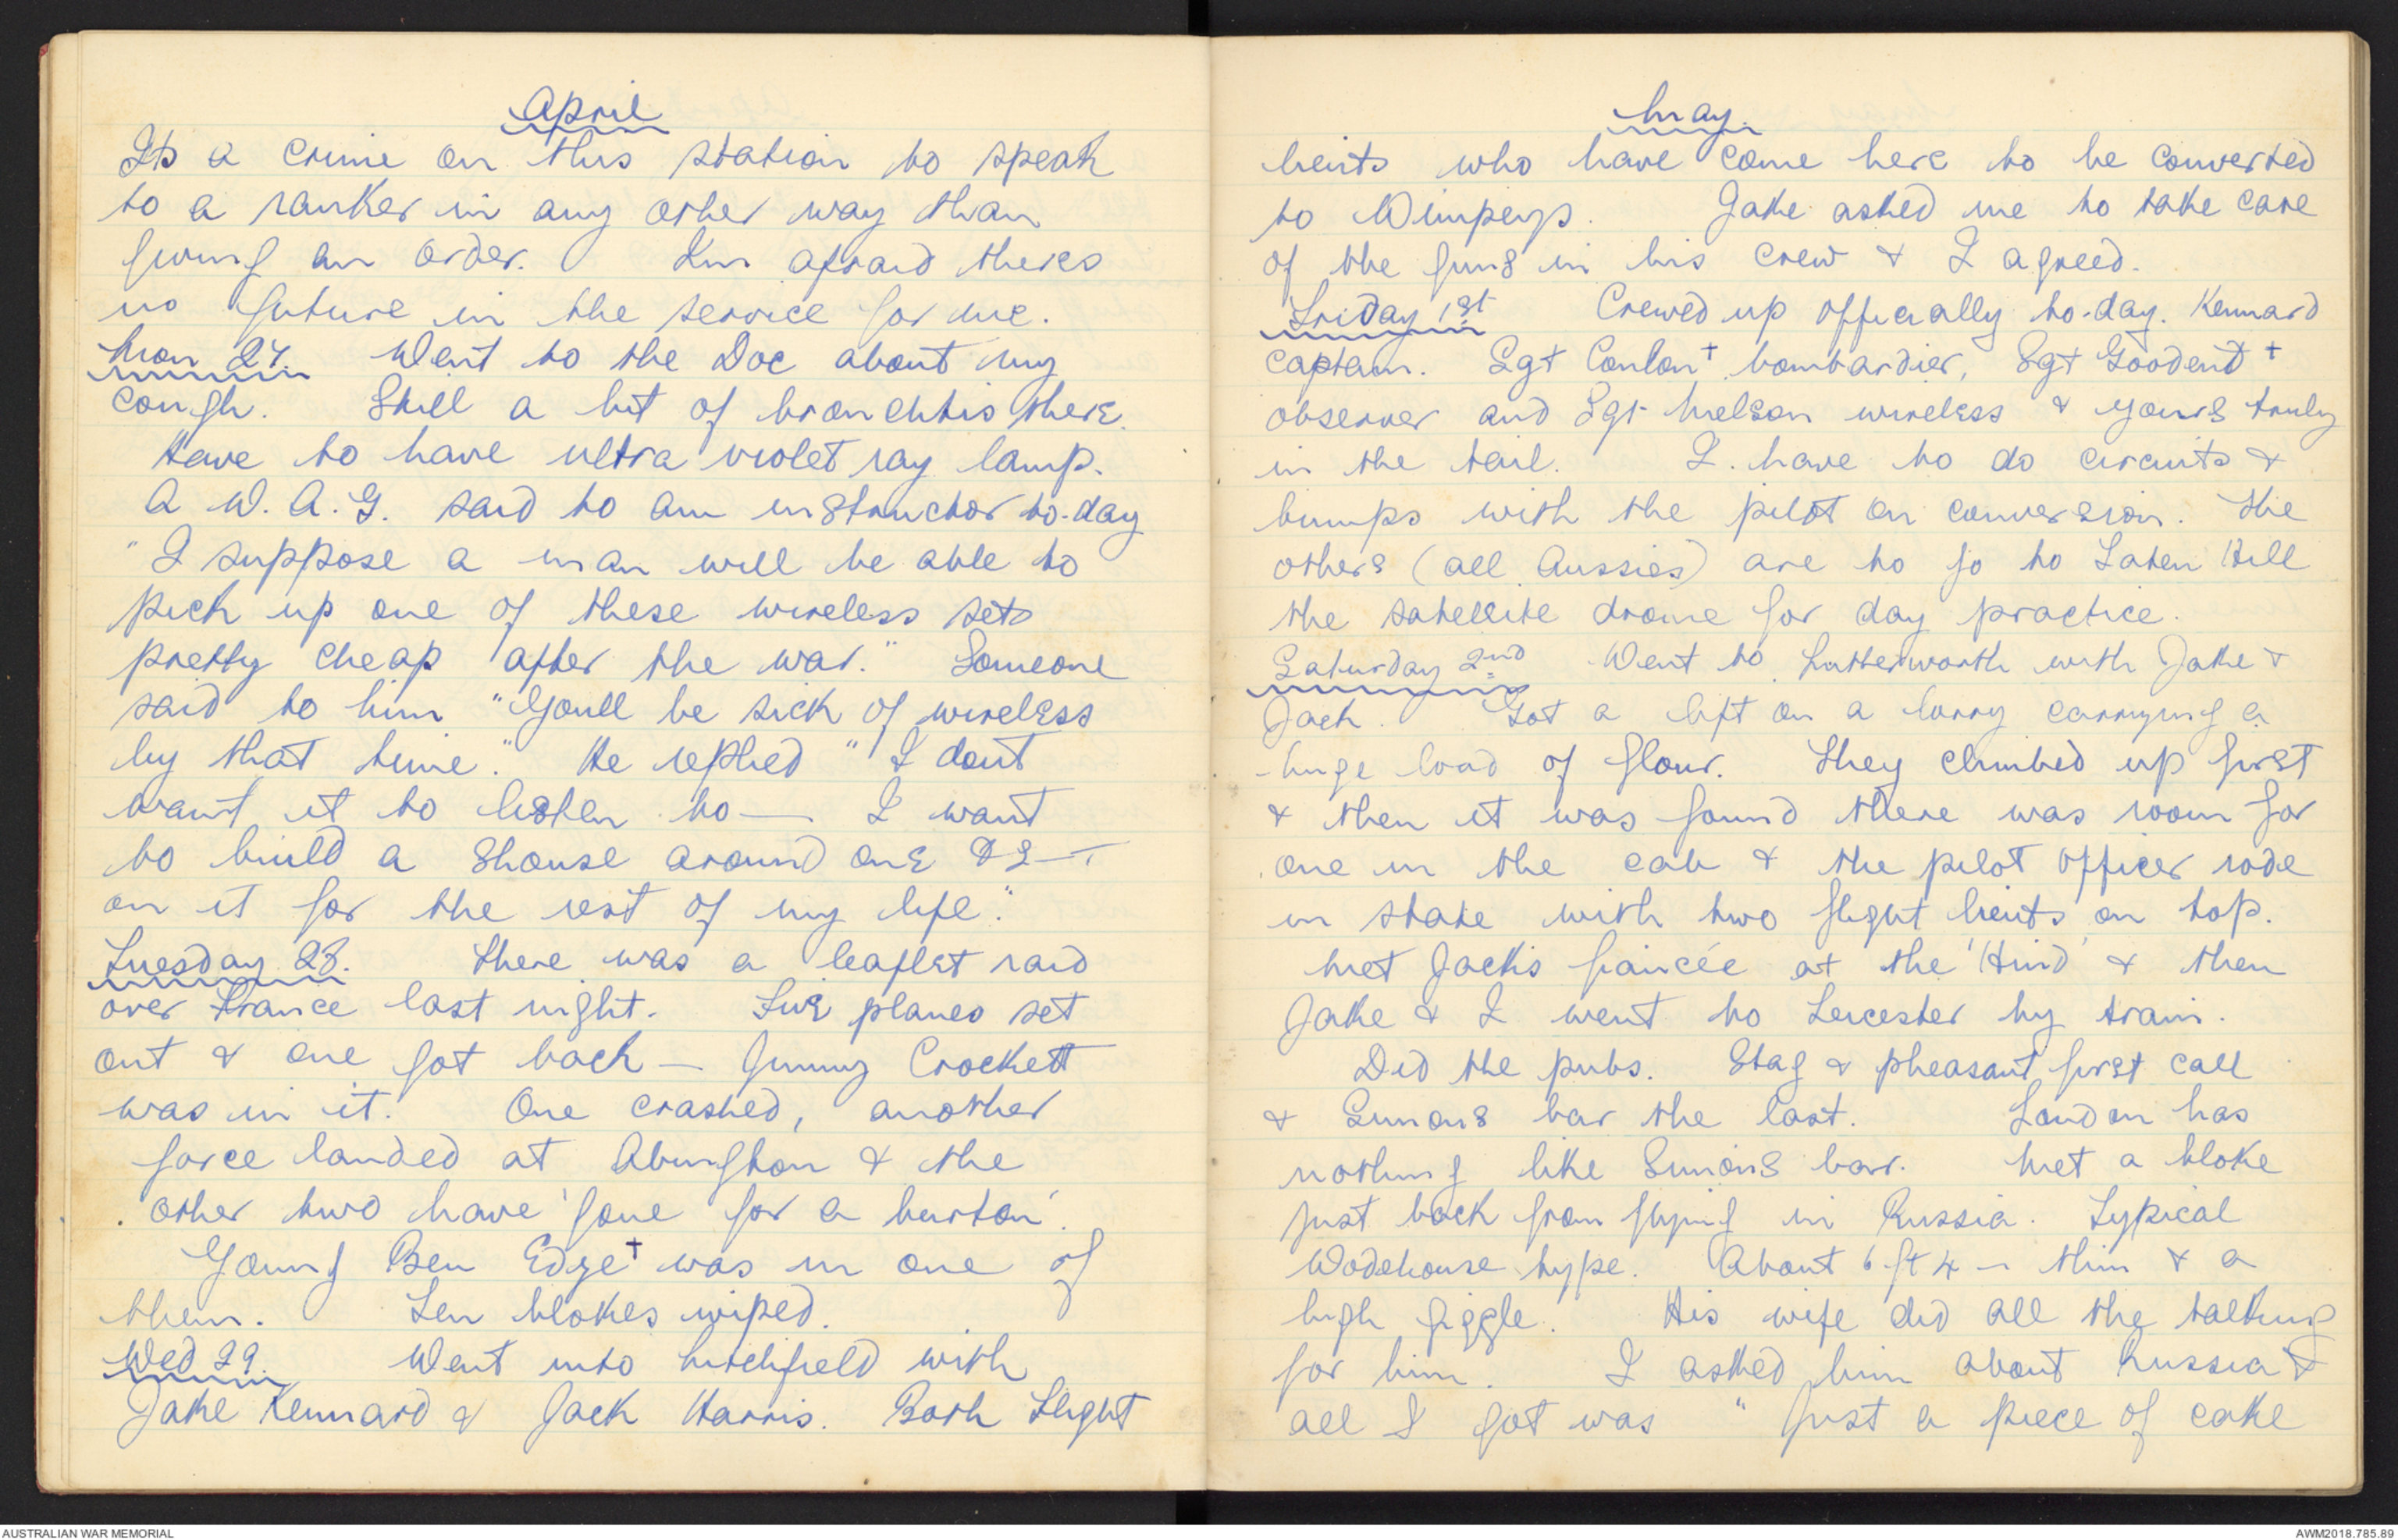 April
Its a crime on this station to speak
to a ranker in any other way than
giving an order. I'm afraid theres
no future in the service for me.
Mon 27. Went to the Doc about my
cough. Still a bit of bronchitis there.
Have to have ultra violet ray lamp.
A W.A.G. said to an instructor to-day
"I suppose a man will be able to
pick up one of these wireless sets
pretty cheap after the war." Someone
said to him "Youll be sick of wireless
by that time." He replied "I dont
want it to listen to — I want
to build a shouse around one & S—T
on it for the rest of my life."
Tuesday 28. There was a leaflet raid
over France last night. Five planes set
out & one got back — Jimmy Crockett
was in it. One crashed, another
force landed at Abingdon & the
other two have 'gone for a burton'.
Young Ben Edge+ was in one of
them. Ten blokes wiped.
Wed 29. Went into with
Jake Kennard & Jack Harris. Both Flight
May.
lieuts who have come here to be converted
to Wimpeys. Jake asked me to take care
of the guns in his crew & I agreed.
Friday 1st Crewed up officially to-day. Kennard
captain. Sgt Conlon+ bombardier, Sgt +
observer and Sgt Nelson wireless & yours truly
in the tail. I have to do circuits &
bumps with the pilot on conversion. The
others (all Aussies) are to go to Hill
the satellite drome for day practice.
Saturday 2nd Went to Lutterworth with Jake &
Jack. Got a lift on a lorry carrying a
huge load of flour. They climbed up first
& then it was found there was room for
one in the cab & the pilot officer rode
in state with two flight lieuts on top.
Met Jack's fiancée at the 'Hind' & then
Jake & I went to Leicester by train.
Did the pubs. Stag & pheasant first call
& Simons bar the last. London has
nothing like Simons bar. Met a bloke
just back from flying in Russia. Typical
Wodehouse type. About 6 ft 4 – thin & a
high giggle. His wife did all the talking
for him. I asked him about Russia &
all I got was "Just a piece of cake
AUSTRALIAN WAR MEMORIAL
AWM2018.785.89